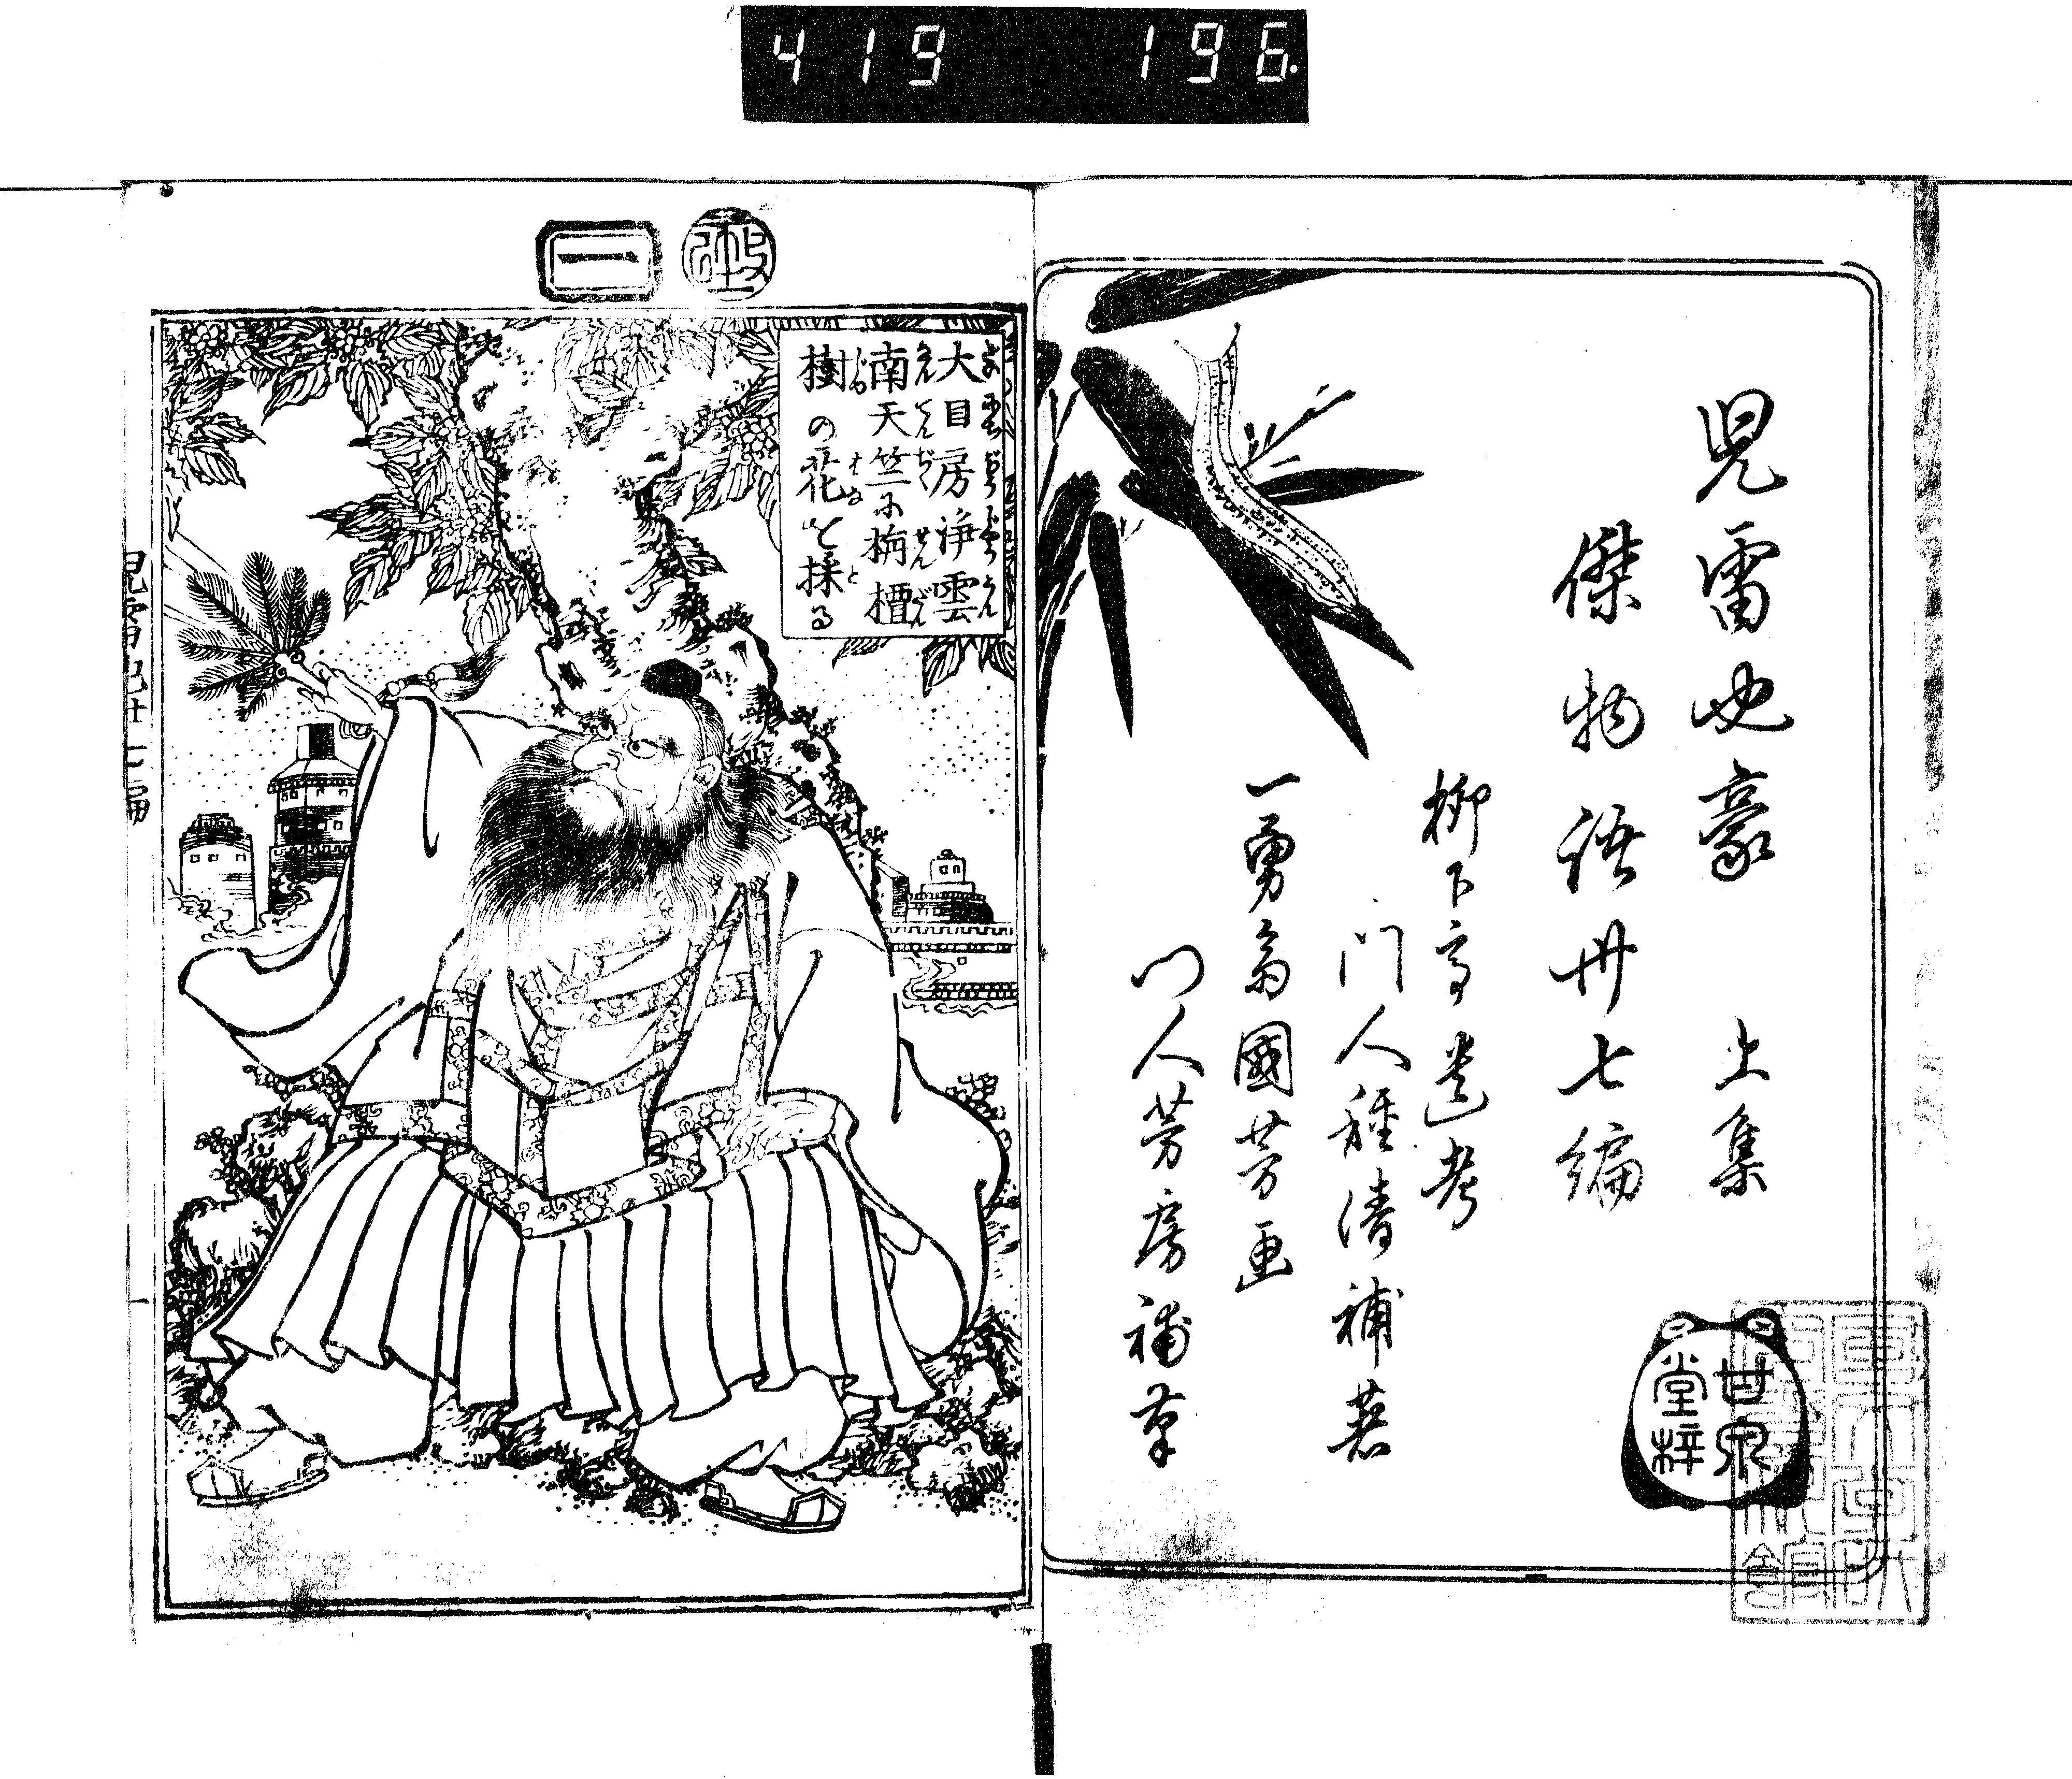 419 196.
児雷也豪傑物語
児雷也豪 上集
傑物語卅七編
柳下亭遺考
門人種清補著
一勇斎國芳画
門人芳房補筆
甘泉
堂梓
一
大目房浄雲
南天竺に栴檀
樹の花を採る